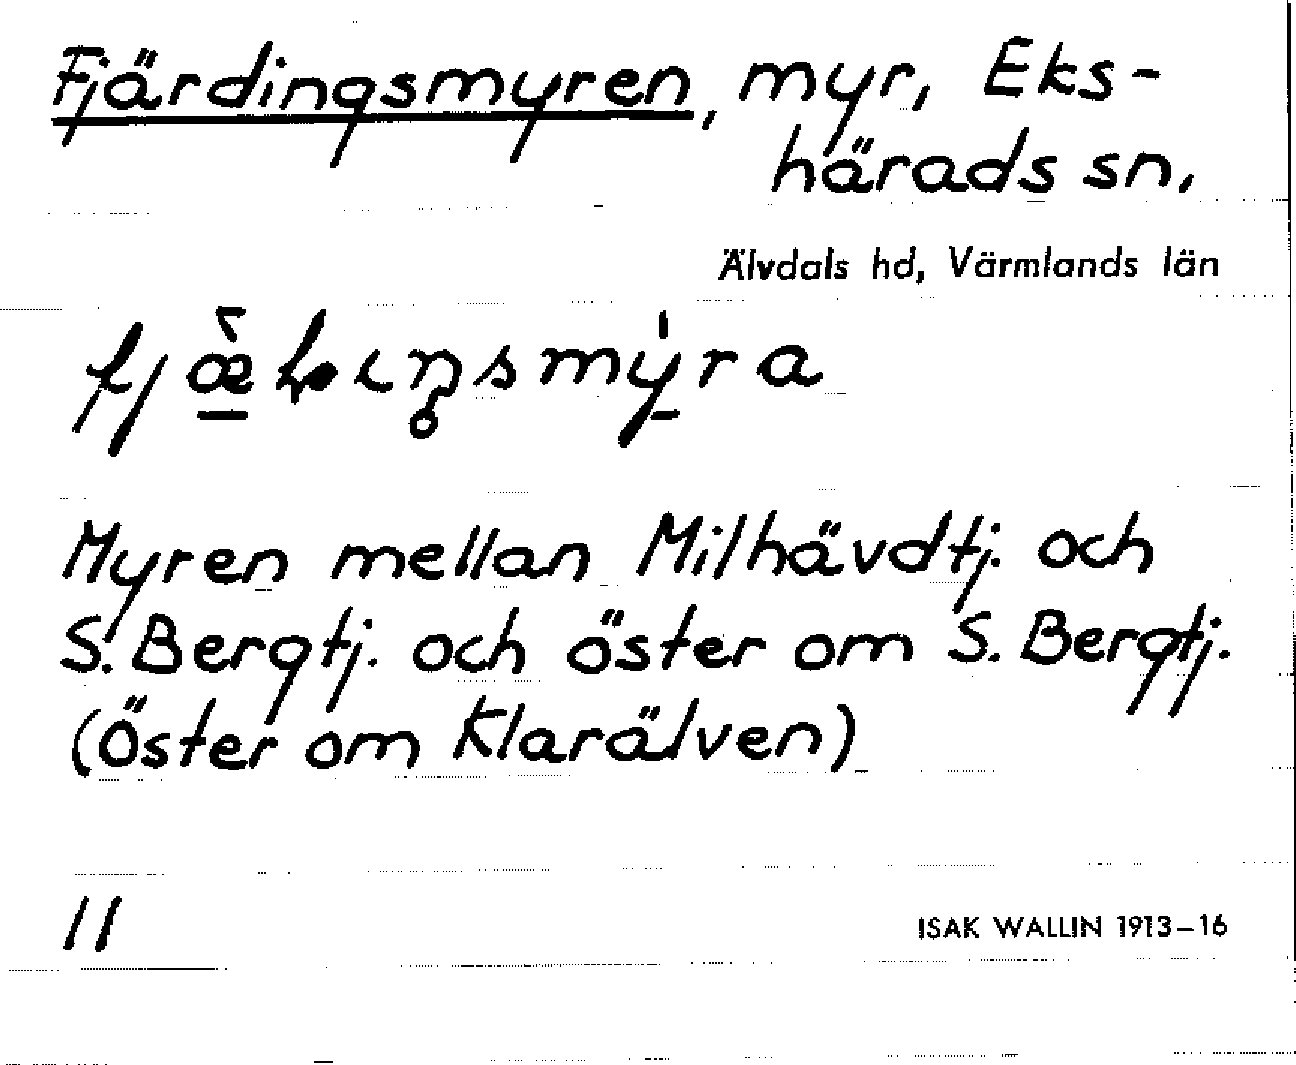 Fjärdingsmyren, myr, Eks-
härads sn,
Älvdals hd, Värmlands län
Myren mellan Milhävdtj. och
S. Bergtj. och öster om S. Bergtj.
(Öster om Klarälven)
11
ISAK WALLIN 1913–16